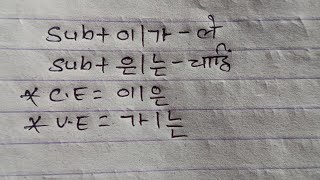 Sub+ 이|가 - ले
Sub+ 은|는 - चाहिं
* C.E = 이|은
* V.E = 가|는